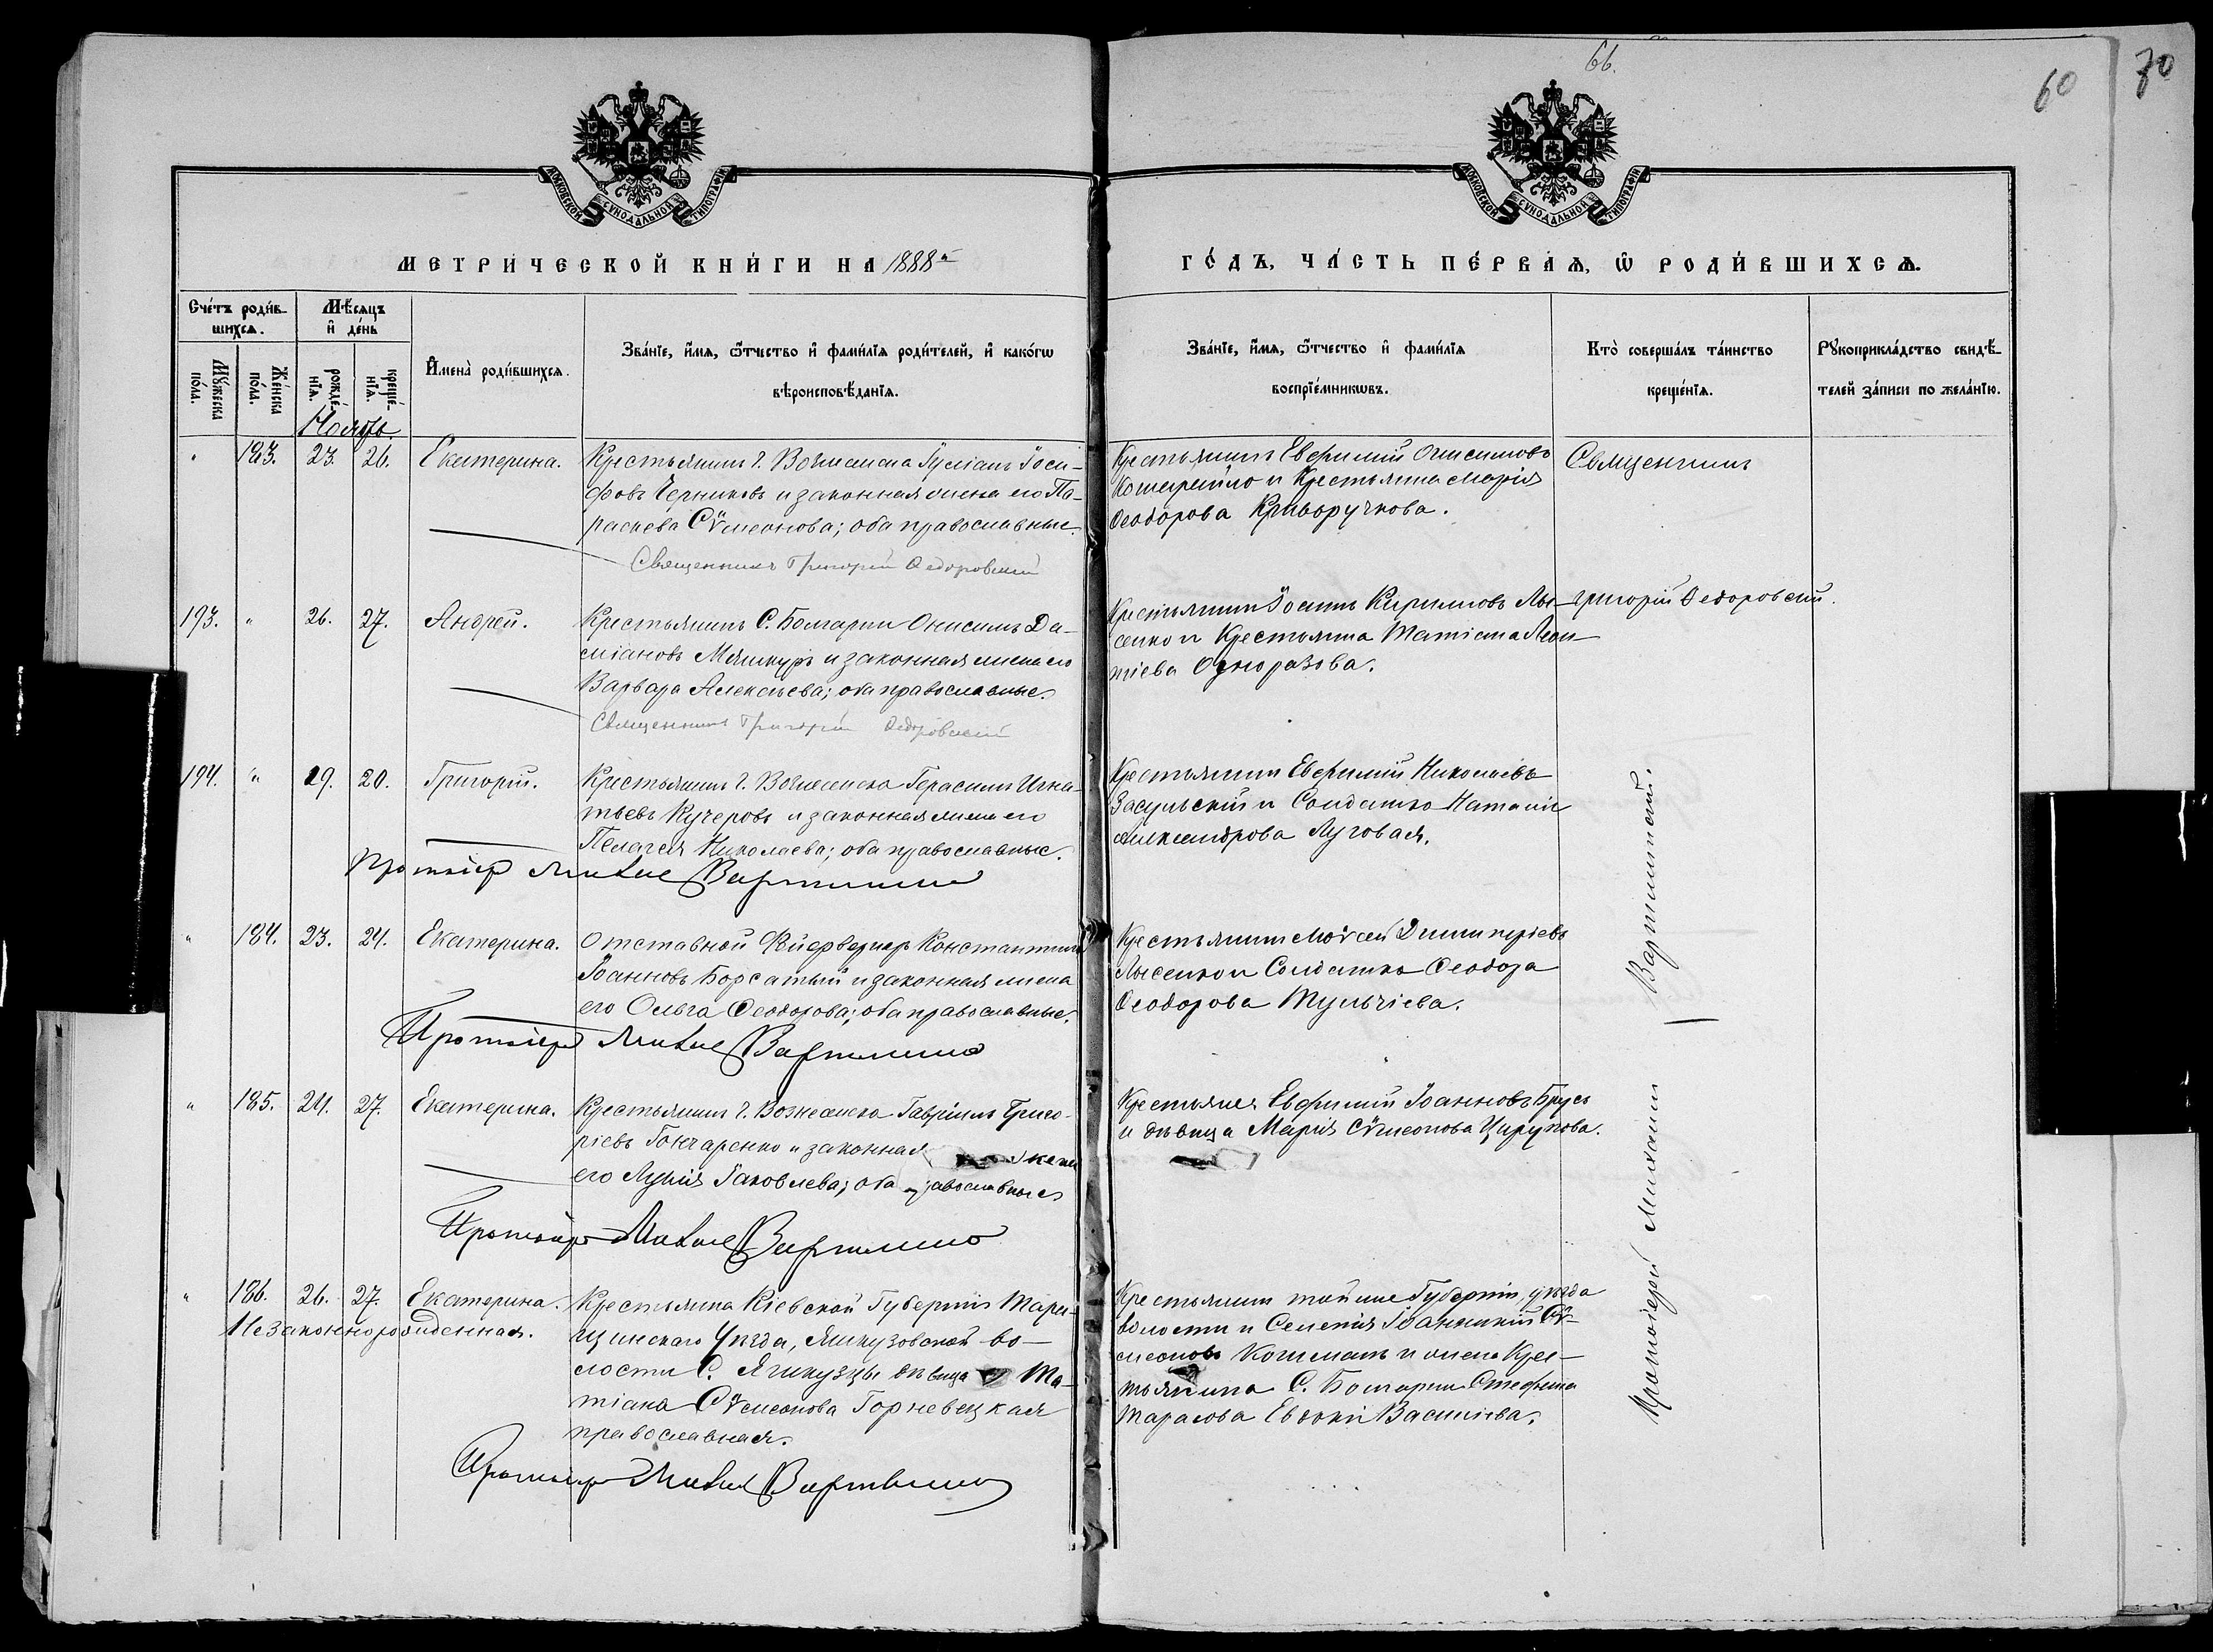 66.
60
70
МОСКОВСКОЙ СѴНОДАЛЬНОЙ ТИПОГРАФІИ
МОСКОВСКОЙ СѴНОДАЛЬНОЙ ТИПОГРАФІИ
МЕТРИ́ЧЕСКОЙ КНИ́ГИ НА 1888й
ГО́ДЪ, ЧА́СТЬ ПЕ́РВАѦ, Ѽ РОДИ́ВШИХСѦ.
Сче́тъ роди́в-
шихсѧ.
Мꙋ́жеска по́ла.
Же́нска по́ла.
Мѣ́сѧцъ
и҆ де́нь
рожде́-
нїѧ.
креще́-
нїѧ.
И҆мена̀ роди́вшихсѧ.
Зва́нїе, и҆́мѧ, ѻ҆́тчество и҆ фами́лїѧ роди́телей, и҆ како́гѡ
вѣроисповѣ́данїѧ.
Зва́нїе, и҆́мѧ, ѻ҆́тчество и҆ фами́лїѧ
воспрїе́мникѡвъ.
Кто̀ соверша́лъ та́инство
креще́нїѧ.
Рꙋкоприкла́дство свидѣ́-
телей за́писи по жела́нїю.
Ноябрь.
" 183. 23. 26. Екатерина. Крестьянинъ г. Вознесенска Іуліанъ Іоси-
фовъ Черниковъ и законная жена его Па-
раскева Сѵмеонова; оба православные.
Священникъ Григорій Ѳедоровскій
Крестьянинъ Евфимій Онисимовъ
и Крестьянка Марія
Ѳеодорова Криворучкова.
Священникъ
193. " 26. 27. Андрей. Крестьянинъ С. Болгарки Онисимъ Да-
міановъ и законная жена его
Варвара Алексѣева; оба православные.
Священникъ Григорій Ѳедоровскій
Крестьянинъ Іоаннъ Кирилловъ Лы-
сенко и Крестьянка Татіана Леон-
тіева Одноразова.
Григорій Ѳедоровскій.
194. " 19. 20. Григорій. Крестьянинъ г. Вознесенска Герасимъ Игна-
тьевъ Кучеровъ и законная жена его
Пелагея Николаева; оба православные.
Протоіерей Михаилъ
Крестьянинъ Евфимій Николаевъ
Засульскій и Солдатка Наталія
Александрова Луговая.
" 184. 23. 24. Екатерина. Отставной Фейерверкеръ Константинъ
Іоанновъ Борсатый и законная жена
его Ольга Ѳеодорова; оба православные.
Протоіерей Михаилъ
Крестьянинъ Моѵсей Димитріевъ
Лысенко и Солдатка Ѳеодора
Ѳеодорова Тульчіева.
" 185. 24. 27. Екатерина. Крестьянинъ г. Вознесенска Гавріилъ Григо-
ріевъ Гончаренко и законная жена
его Лукія Іаковлева; оба православные
Протоіерей Михаилъ
Крестьянинъ Евфимій Іоанновъ Брусъ
и дѣвица Марія Сѵмеонова Цирупова.
" 186. 26. 27. Екатерина. Крестьянка Кіевской Губерніи Тара-
Незаконнорожденная.
щинскаго Уѣзда, Янкузовской во-
лости С. дѣвица Та-
тіана Сѵмеонова Горневецкая
православная.
Протоіерей Михаилъ
Крестьянинъ той же Губерніи, уѣзда
волости и Селенія Іоанникій Сѵ-
меоновъ и жена Крес-
тьянина С. Болгарки Стефана
Тарасова Евдокія Василіева.
Протоіерей Михаилъ